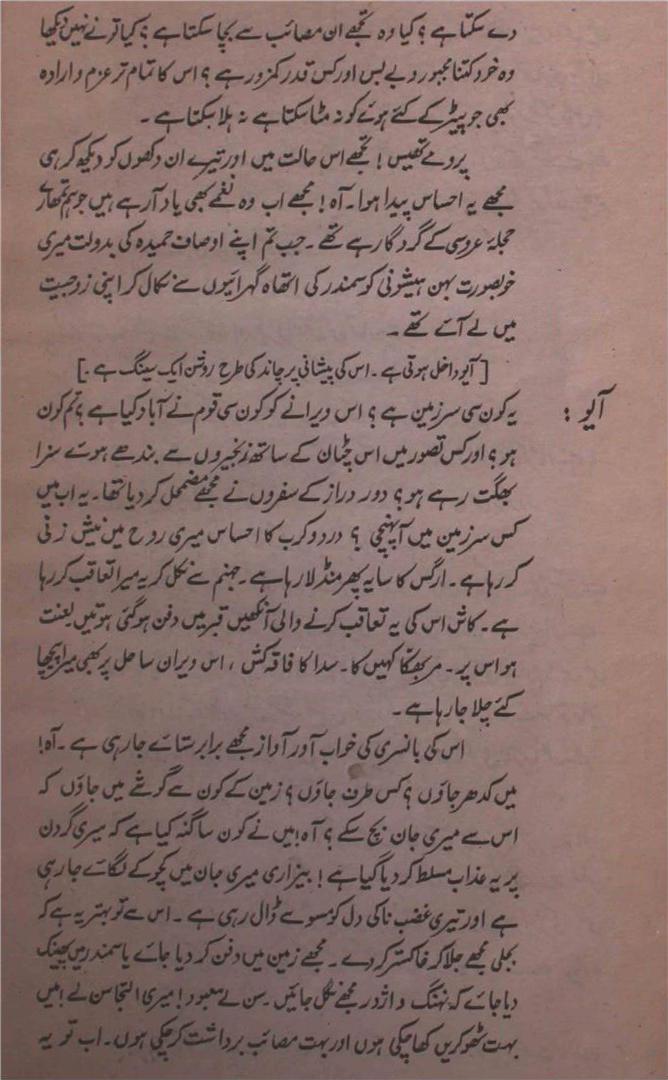 دے سکتا ہے؟ کیا وہ تجھے ان مصائب سے بچا سکتا ہے؟ کیا تو نے نہیں دیکھا
وہ خود کتنا مجبور و بے بس اور کس قدر کمزور ہے؟ اس کا تمام تر عزم و ارادہ
بھی جوپیٹر کے کئے ہوئے کو نہ مٹا سکتا ہے نہ ہلا سکتا ہے ۔
پرومے تھیس! تجھے اس حالت میں اور تیرے ان دکھوں کو دیکھ کر ہی
مجھے یہ احساس پیدا ہوا۔ آہ! مجھے اب وہ نغمے بھی یاد آ رہے ہیں جو ہم تمہارے
حجلۂ عروسی کے گرد گا رہے تھے ۔ جب تم اپنے اوصاف حمیدہ کی بدولت میری
خوبصورت بہن ہیشونی کو سمندر کی اتھاہ گہرائیوں سے نکال کر اپنی زوجیت
میں لے آئے تھے ۔
[آیو داخل ہوتی ہے ۔ اس کی پیشانی پر چاند کی طرح روشن ایک سینگ ہے ۔]
آیو : یہ کون سی سرزمین ہے؟ اس ویرانے کو کون سی قوم نے آباد کیا ہے؟ تم کون
ہو؟ اور کس قصور میں اس چٹان کے ساتھ زنجیروں سے بندھے ہوئے سزا
بھگت رہے ہو؟ دور دراز کے سفروں نے مجھے مضمحل کر دیا تھا ۔ یہ اب میں
کس سرزمین میں آ پہنچی؟ درد و کرب کا احساس میری روح میں نیش زنی
کر رہا ہے ۔ ارگس کا سایہ پھر منڈلا رہا ہے ۔ جہنم سے نکل کر یہ میرا تعاقب کر رہا
ہے ۔ کاش اس کی یہ تعاقب کرنے والی آنکھیں قبر میں دفن ہو گئی ہوتیں لعنت
ہو اس پر ۔ مربھکا کہیں کا ۔ سدا کا فاقہ کش ، اس ویران ساحل پر بھی میرا پیچھا
کئے چلا جا رہا ہے ۔
اس کی بانسری کی خواب آور آواز مجھے برابر ستائے جا رہی ہے ۔ آہ!
میں کدھر جاؤں؟ کس طرف جاؤں؟ زمین کے کون سے گوشے میں جاؤں کہ
اس سے میری جان بچ سکے؟ آہ! میں نے کون سا گنہ کیا ہے کہ میری گردن
پر یہ عذاب مسلط کر دیا گیا ہے! بیزاری میری جان میں کچوکے لگائے جا رہی
ہے اور تیری غضب ناکی دل کو مسوسے ڈال رہی ہے ۔ اس سے تو بہتر یہ ہے کہ
بجلی مجھے جلا کر خاکستر کر دے ۔ مجھے زمین میں دفن کر دیا جائے یا سمندر میں پھینک
دیا جائے کہ نہنگ و اژدر مجھے نگل جائیں ۔ سن لے معبود! میری التجا سن لے! میں
بہت ٹھوکریں کھا چکی ہوں اور بہت مصائب برداشت کر چکی ہوں ۔ اب تو یہ